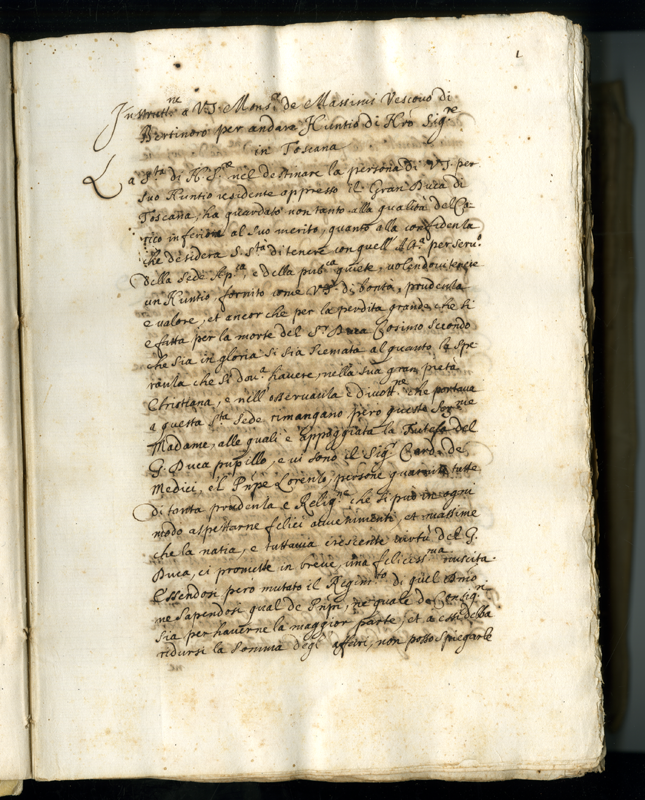 1
Instrutt.ne a V.S. Mons.r de Massimi Vescovo di
Bertinoro per andare Nuntio di N.ro Sig.re
in Toscana
La S.ta di N. S.re nel destinare la persona di V.S. per
suo Nuntio residente appresso il Gran Duca di
Toscana, ha guardato non tanto alla qualità del Ca-
rico inferiore al suo merito, quanto alla confidenza
che desidera S. S.tà di tenere con quell'Alt.a per serv.o
della Sede Ap.ca e della pub.ca quiete, volendovi tenere
un Nuntio fornito come V.S. di bontà, prudenza
e valore, et ancor che per la perdita grande che si
è fatta per la morte del S.r Duca Cosimo secondo
che sia in gloria si sia scemata alquanto la spe-
ranza che si dov.a havere nella sua gran pietà
Christiana, e nell'osservanza e divott.ne che portava
a questa S.ta Sede rimangano però queste Ser.me
Madame, alle quali è appoggiata la Tutela del
G. Duca pupillo, e vi sono il Sig.r Card. de
Medici, e'l Pnpe Lorenzo, persone tutte
di tanta prudenza e Relig.ne che si può in ogni
modo aspettarne felici avvenimenti, et massime
che la natia, e tuttavia crescente virtù del G.
Duca, ci promette in breve, una feliciss.ma riuscita.
Essendosi però mutato il Regim.to di quel Dnio
ne sapendosi qual de Pnpi, ne quale de Consig.ri
sia per haverne la maggior parte, et a essi debba
ridursi la somma degl'affari, non posso spiegarle